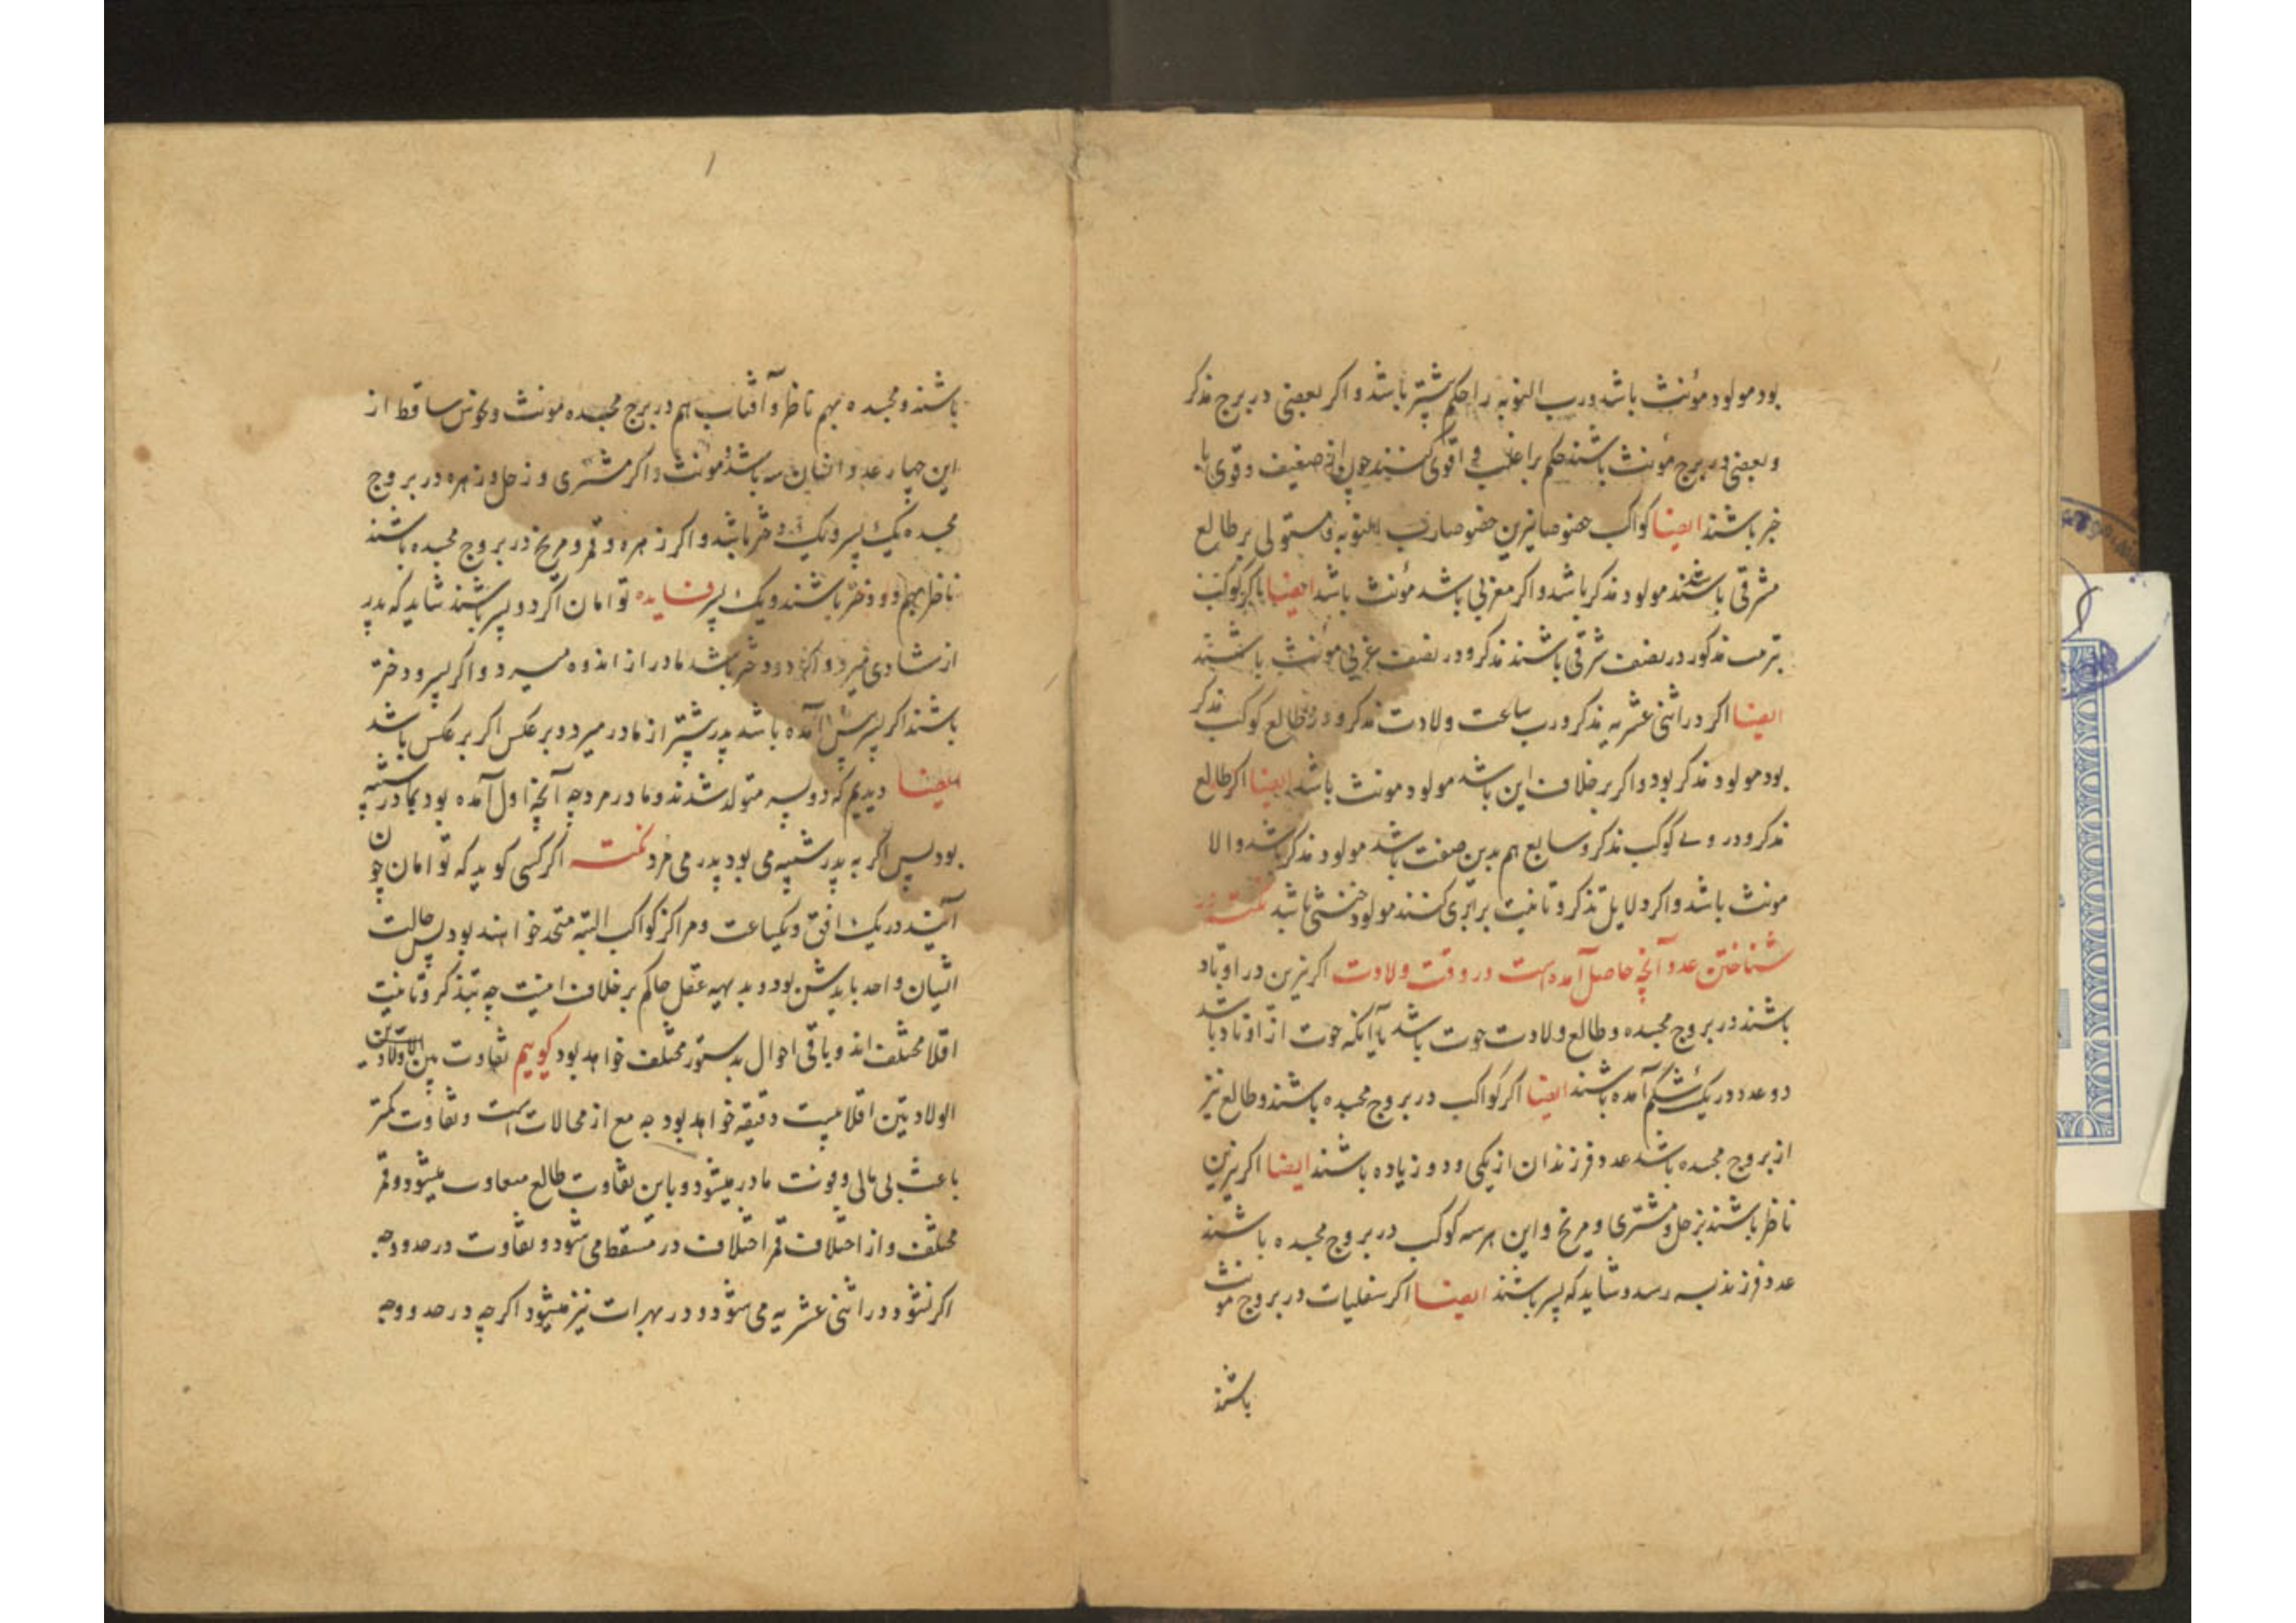 بود مولود مؤنث باشد و رب النوبه را حکم بیشتر باشد و اکر بعضی در برج مذکر
و بعضی در برج مؤنث باشند حکم بر اغلب و اقوی کنند چون ضعیف و قوی با
خبر باشند ایضا کواکب خصوصا نیرین خصوصا رب النوبه و مستولی بر طالع
مشرقی باشند مولود مذکر باشد و اکر مغربی باشد مؤنث باشد ایضا کوکب
مذکور در نصف شرقی باشند مذکر و در نصف غربی مؤنث باشند
ایضا اکر در اثنی عشریه مذکر و رب ساعت ولادت مذکر و در طالع کوکب مذکر
بود مولود مذکر بود و اکر بر خلاف این باشد مولود مونث باشد ایضا اکر طالع
مذکر و در وی کوکب مذکر و سابع هم بدین صفت باشد مولود مذکر باشد و الا
مونث باشد و اکر دلایل تذکر و تانیث برابری کنند مولود خنثی باشد نکته در
شناختن عدد آنچه حاصل آمده است در وقت ولادت اکر نیرین در اوتاد
باشند در بروج مجسده و طالع ولادت حوت باشد یا آنکه حوت از اوتاد باشد
دو عدد در یک شکم آمده باشند ایضا اکر کواکب در بروج مجسده باشند و طالع نیز
از بروج مجسده باشد عدد فرزندان از یکی و دو زیاده باشند ایضا اکر نیرین
ناظر باشند بزحل و مشتری و مریخ و این هر سه کوکب در بروج مجسده باشند
عدد فرزند بسه رسد و شاید که پسر باشند ایضا اکر سفلیات در بروج مونث
باشند
باشند و مجسده بهم ناظر و آفتاب هم در برج مجسده مونث و نحوس ساقط از
این چهار عدد ایشان سه باشد و مونث و اکر مشتری و زحل و زهره در بروج
مجسده یک پسر و یک دختر باشد و اکر زهره و قمر و مریخ در بروج مجسده باشند
ناظر بهم دو دختر باشند و یک پسر فایده توامان اکر دو پسر باشند شاید که پدر
از شادی میرد و اکر دو دختر باشد مادر از اندوه میرد و اکر پسر و دختر
باشند اکر پسر پیش آمده باشد پدر پیشتر از مادر میرد و بر عکس اکر بر عکس باشد
ایضا دیدیم که دو پسر متولد شدند و مادر مرد چه آنچه اول آمده بود بمادر شبیه
بود پس اکر به پدر شبیه می بود پدر می مرد نکته اکر کسی کوید که توامان چون
آیند در یک افق و یکساعت و مراکز کواکب البته متحد خواهند بود پس حالت
ایشان واحد باید شدن بود و بدیهیه عقل حاکم بر خلاف اینست چه بتذکر و تانیث
اقلا مختلف اند و باقی احوال بدستور مختلف خواهد بود کوییم تفاوت بین
الولادتین اقلا بیست دقیقه خواهد بود چه مع از محالات است و تفاوت کمتر
باعث بی حالی و فوت مادر میشود و باین تفاوت طالع متفاوت میشود و قمر
مختلف و از اختلاف قمر اختلاف در مسقط می شود و تفاوت در حد و وجه
اکر نشود در اثنی عشریه می شود و در نهبرات نیز میشود اکر چه در حد و وجه